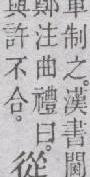 車制之。漢書闐
鄭注曲禮曰。從
與許不合。